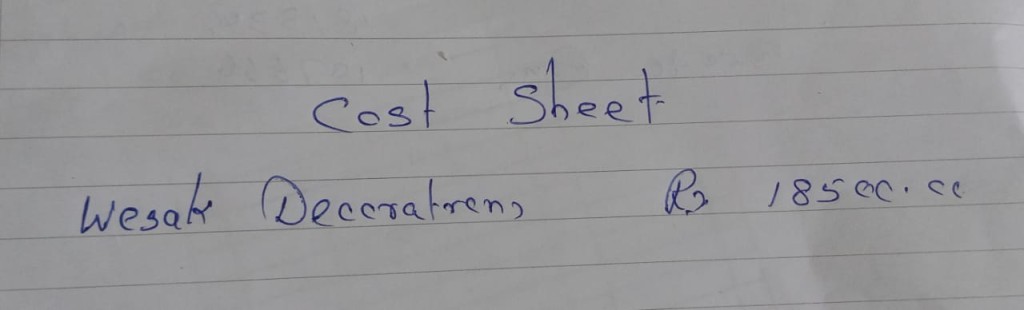 Cost Sheet
Wesak Decorations Rs 18500.00